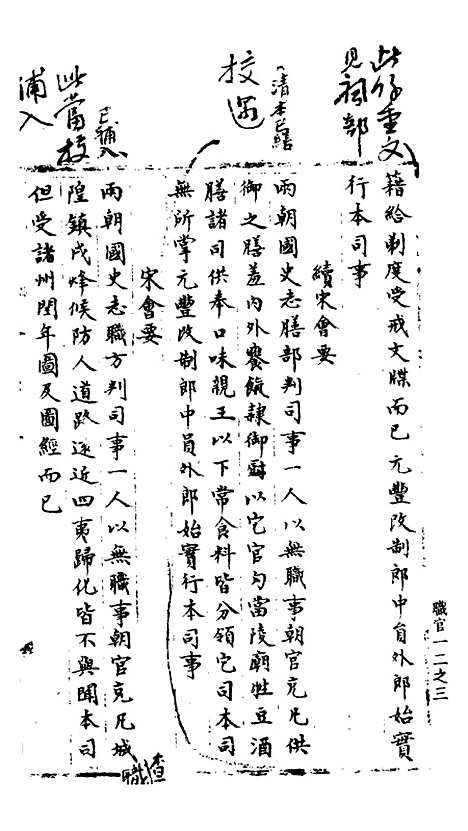 此條重文
見祠部
籍給制度受戒文牒而已元豐改制郎中員外郎始實
行本司事
續宋會要
兩朝國史志膳部判司事一人以無職事朝官充凡供
御之膳羞內外饔餼隷御厨以它官勾當陵廟牲豆酒
膳諸司供奉口味親王以下常食料皆分領它司本司
無所掌元豐改制郎中員外郎始實行本司事
宋會要
兩朝國史志職方判司事一人以無職事朝官充凡城
隍鎮戍烽候防人道路遠近四夷歸化皆不與聞本司
但受諸州閏年圖及圖經而已
清本已繕
校過
已補入
此當校
補入
職官一二之三
職